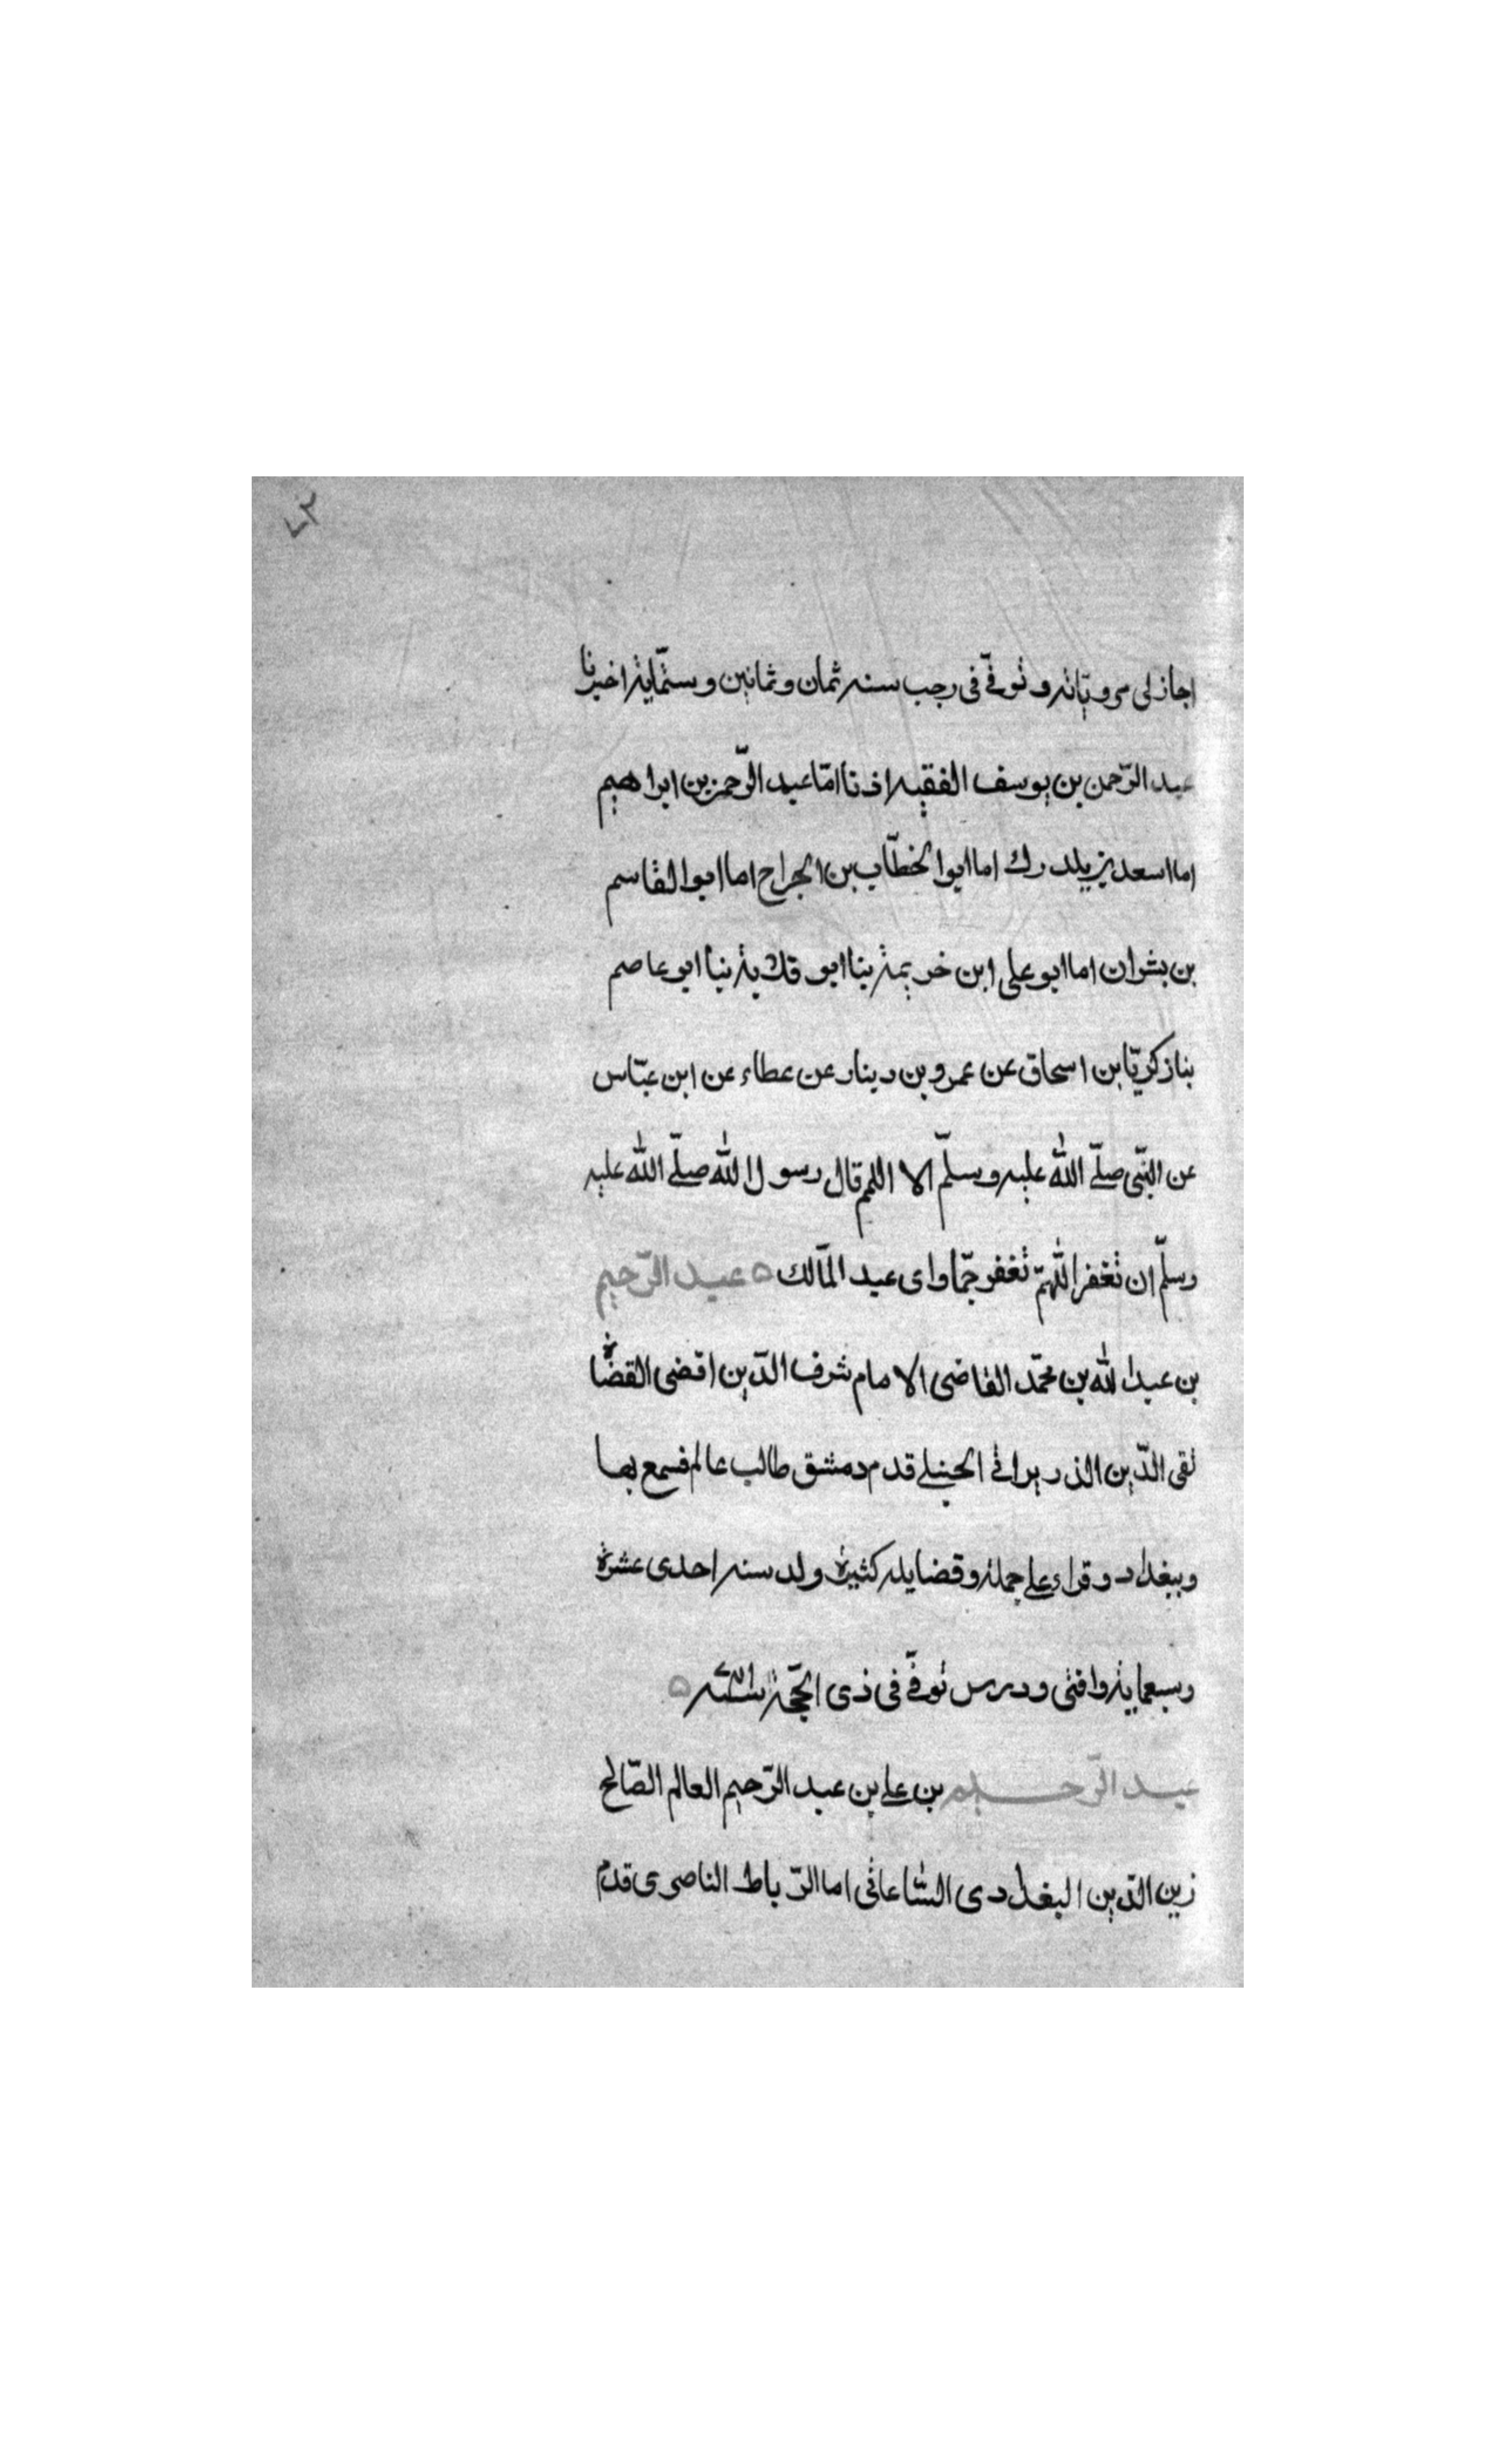 اجاز لى مروياته وتوفى فى رجب سنه ثمان وثمانين وستماية اخبرنا
عبد الرّحمن بن يوسف الفقيه اذنا امّا عبد الرّحمن بن ابراهيم
اما اسعد بن يلدرك اما ابوا الخطّاب بن الجراح اما ابوا القاسم
بن بشران اما ابو على ابن خريمة بنا ابو قلابة بنا ابو عاصم
بنا زكريّا بن اسحاق عن عمرو بن دينار عن عطاء عن ابن عبّاس
عن النبّى صلّى الله عليه وسلّم الا اللمم قال رسول الله صلّى الله عليه
وسلّم ان تغفر اللّهمّ تغفر جمّا واى عبد المآلك ه عبد الرّحيم
بن عبد الله بن محمّد القاضى الامام شرف الدّين اقضى القضاة
تقى الدّين الذريرانى الحنبلى قدم دمشق طالب عالم فسمع بها
وببغداد وقراء على جملة وقضايله كثيرة ولد سنه احدى عشرة
وسبعماية وافتى ودرس توفّى فى ذى الحجّة ه
عبد الرّحيم بن على بن عبد الرّحيم العالم الصّالح
زين الدّين البغدادى الشاعافى اما الرّباط الناصرى قدم